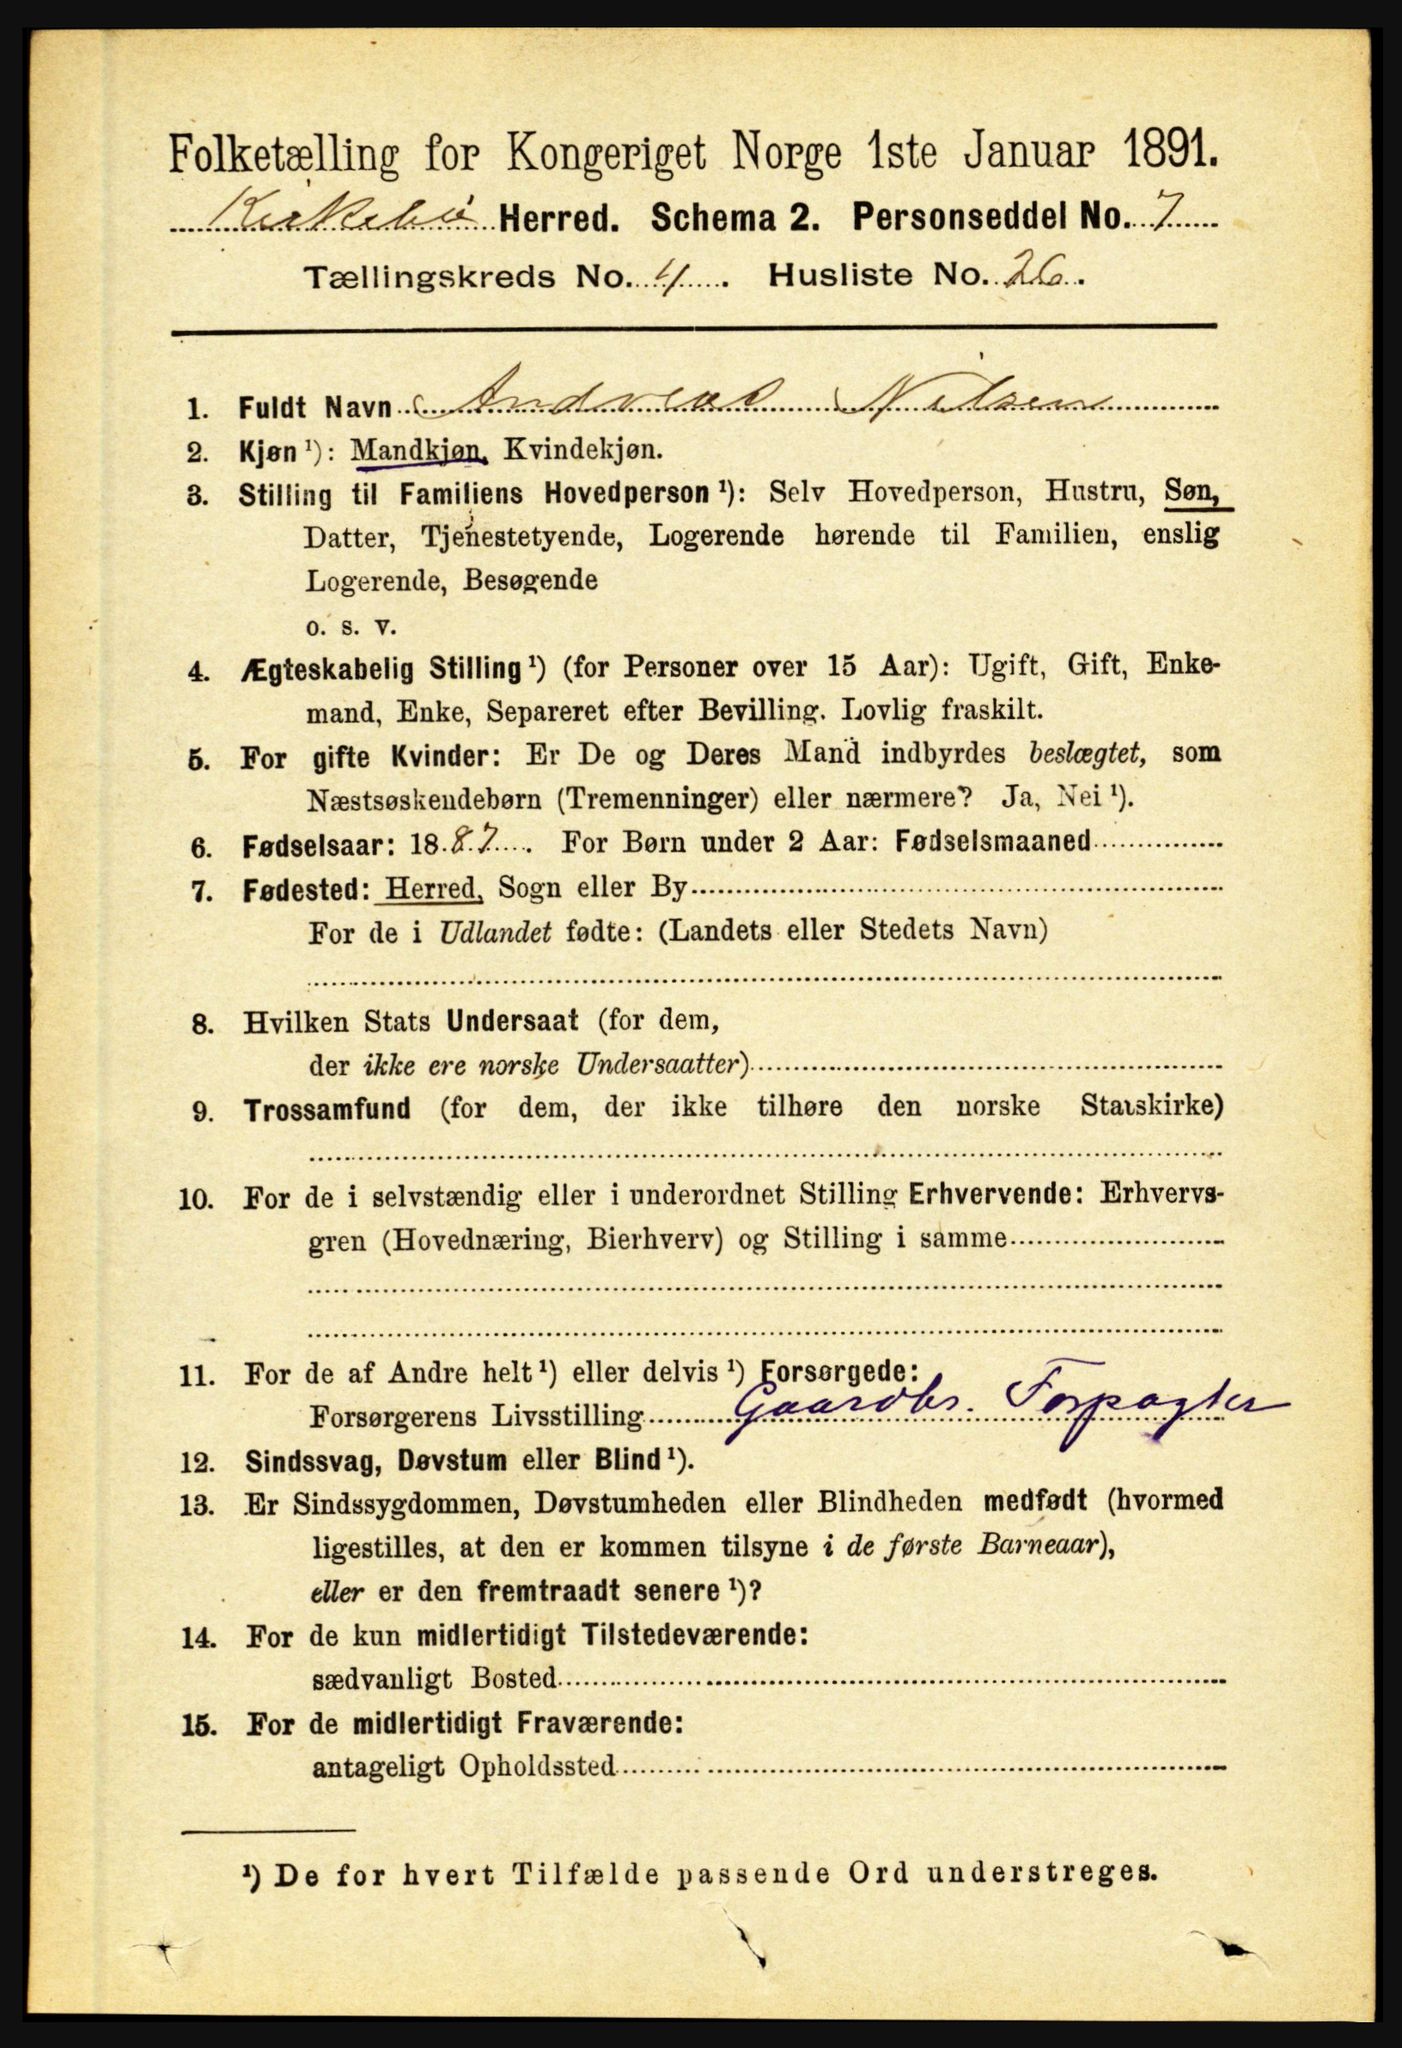 Folketælling for Kongeriget Norge 1ste Januar 1891.
Kirkebø Herred. Schema 2. Personseddel No. 7
Tællingskreds No. 4. Husliste No. 26.
1. Fuldt Navn Andreas Nilsen
2. Kjøn ¹): Mandkjøn, Kvindekjøn.
3. Stilling til Familiens Hovedperson ¹): Selv Hovedperson, Hustru, Søn,
Datter, Tjenestetyende, Logerende hørende til Familien, enslig
Logerende, Besøgende
o. s. v.
4. Ægteskabelig Stilling ¹) (for Personer over 15 Aar): Ugift, Gift, Enke-
mand, Enke, Separeret efter Bevilling. Lovlig fraskilt.
5. For gifte Kvinder: Er De og Deres Mand indbyrdes beslægtet, som
Næstsøskendebørn (Tremenninger) eller nærmere? Ja, Nei ¹).
6. Fødselsaar: 1887. For Børn under 2 Aar: Fødselsmaaned
7. Fødested: Herred, Sogn eller By
For de i Udlandet fødte: (Landets eller Stedets Navn)
8. Hvilken Stats Undersaat (for dem,
der ikke ere norske Undersaatter)
9. Trossamfund (for dem, der ikke tilhøre den norske Statskirke)
10. For de i selvstændig eller i underordnet Stilling Erhvervende: Erhvervs-
gren (Hovednæring, Bierhverv) og Stilling i samme
11. For de af Andre helt ¹) eller delvis ¹) Forsørgede:
Forsørgerens Livsstilling Gaardbr. Forpagter
12. Sindssvag, Døvstum eller Blind ¹).
13. Er Sindssygdommen, Døvstumheden eller Blindheden medfødt (hvormed
ligestilles, at den er kommen tilsyne i de første Barneaar),
eller er den fremtraadt senere ¹)?
14. For de kun midlertidigt Tilstedeværende:
sædvanligt Bosted
15. For de midlertidigt Fraværende:
antageligt Opholdssted
¹) De for hvert Tilfælde passende Ord understreges.